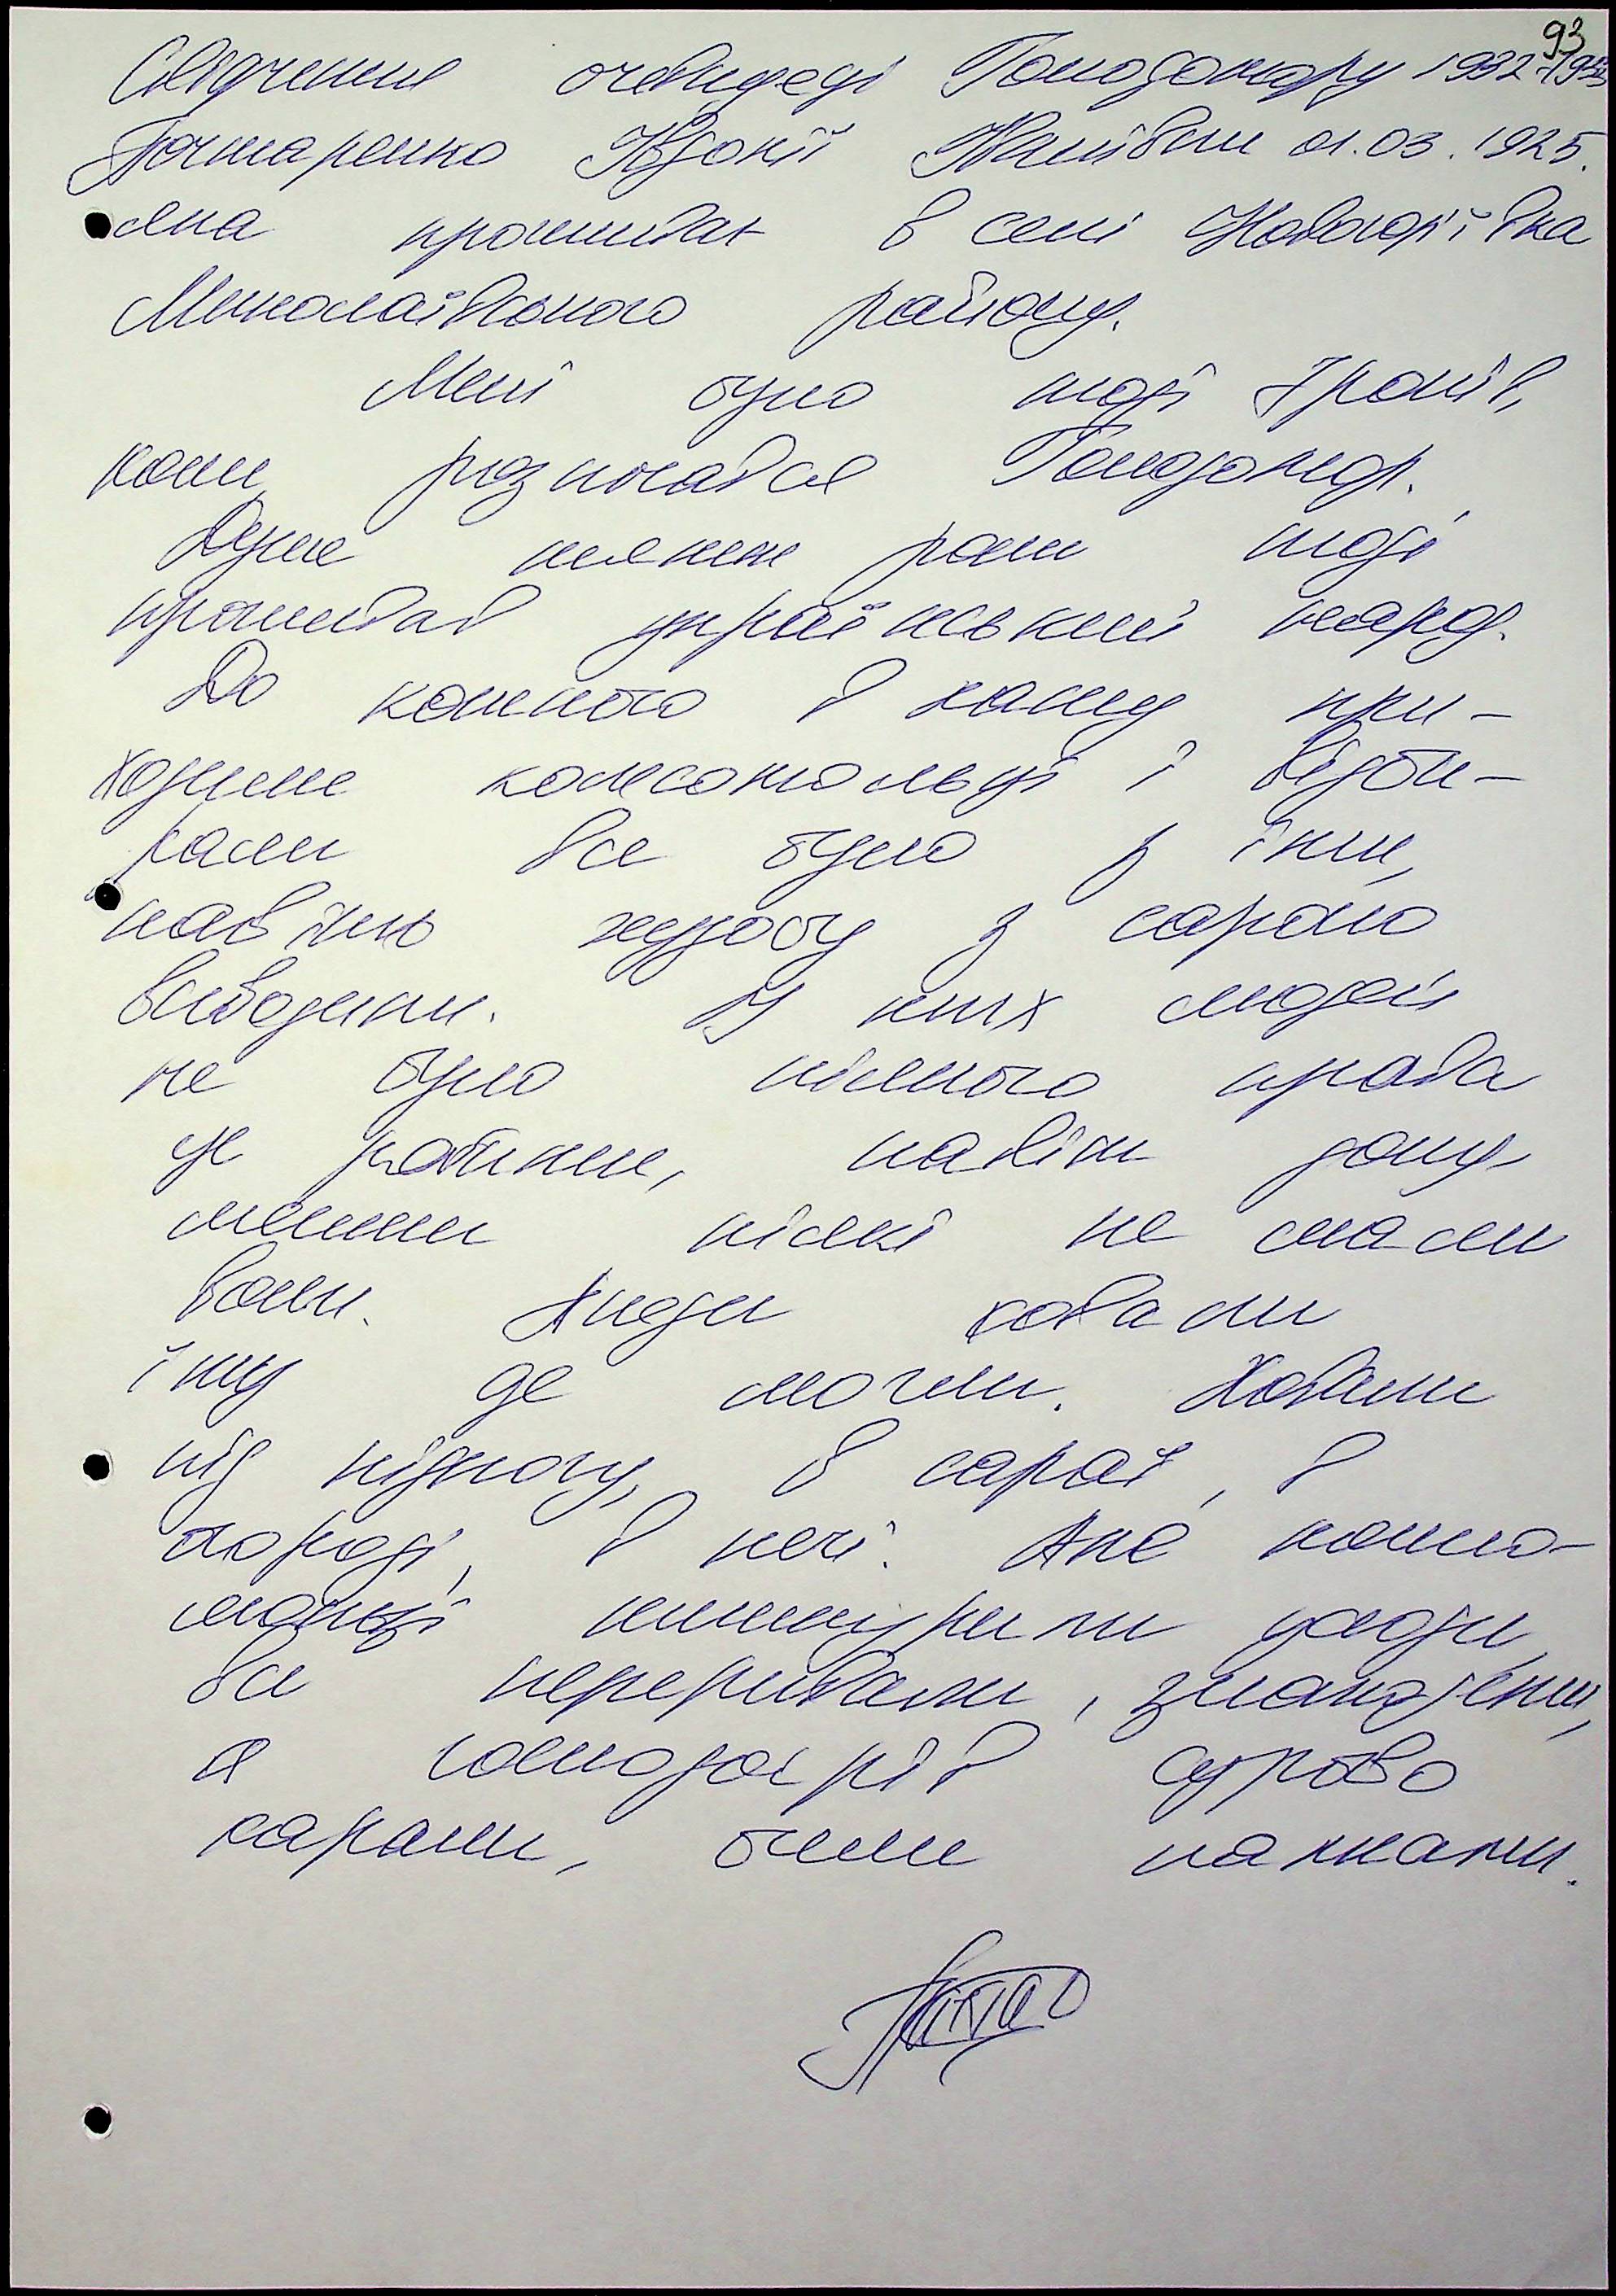 93
Свідчення очевидеці Голодомору 1932-1933
Гончаренко Явдокії Іванівни 01.03.1925.
яка проживає в селі Новогорїївка
Миколаївського району.
Мені було тоді 7 років,
коли розпочався Голодомор.
Дуже тяжки роки тоді
проживав український народ.
До кожного в хату при-
ходили комсомольці і відби-
рали все було з їжи,
навітть худобу з сараю
виводили. У них людей
не було ніякого права
це робити, навіть доку
менти ніякі не мали
вони. Люди ховали
їжу де могли. Ховали
під підлогу, в сараї, в
городі, в печі. Але комсо-
мольці нишпурили усюди,
все перерывали, знаходили,
а господарів сурово
карали, били палками.